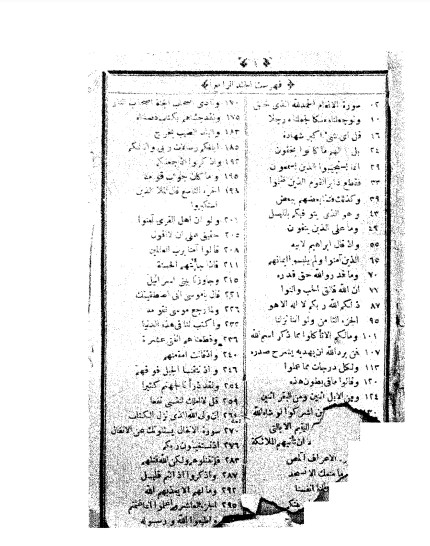 ﴿ فهرست الجلد الرابع ﴾
٠٢ سورة الانعام الحمد لله الذى خلق
١٠ ولو جعلناه ملكا لجعلناه رجلا
١٦ قل اى شىء اكبر شهادة
٢٤ بل بدا لهم ما كانوا يخفون
٢٩ انما يستجيب الذين يسمعون
٣٣ فقطع دابر القوم الذين ظلموا
٣٩ وكذلك فتنا بعضهم ببعض
٤٣ وهو الذى يتوفيكم بالليل
٤٩ وما على الذين يتقون
٥٥ واذ قال ابراهيم لابيه
٦٥ الذين آمنوا ولم يلبسوا ايمانهم
٧٠ وما قدروا الله حق قدره
٧٦ ان الله فالق الحب والنوى
٨٧ ذلكم الله ربكم لا اله الا هو
٩٥ الجزء الثامن ولو اننا نزلنا
١٠١ ومالكم الا تأكلوا مما ذكر اسم الله
١٠٧ فمن يرد الله ان يهديه يشرح صدره
١١٣ ولكل درجات مما عملوا
١٢٠ وقالوا ما فى بطون هذه
١٢٤ ومن الابل اثنين ومن البقر اثنين
١٣٠ اشركوا لو شاء الله
ان تأتيهم الملائكة
الاعراف المص
ما منعك الا تسجد
١٧٠ ونادى اصحاب الجنة اصحاب النار
١٧٥ ولقد جئناهم بكتاب فصلناه
١٨٣ والبلد الطيب يخرج
١٨٥ ابلغكم رسالات ربى
١٩٢ واذكروا اذ جعلكم
١٩٥ وما كان جواب قومه
١٩٨ الجزء التاسع قال الملأ الذين
استكبروا
٢٠١ ولو ان اهل القرى آمنوا
٢٠٥ حقيق على ان لا اقول
٢٠٨ قالوا آمنا برب العالمين
٢١١ فاذا جاءتهم الحسنة
٢١٥ وجاوزنا ببنى اسرائيل
٢٢١ قال يا موسى انى اصطفيتك
٢٢٦ ولما رجع موسى الى قومه
٢٣٣ واكتب لنا فى هذه الدنيا
٢٣٦ وقطعناهم اثنتى عشرة
٢٤٠ واذ قالت امة منهم
٢٤٦ واذ نتقنا الجبل فوقهم
٢٥٤ ولقد ذرأنا لجهنم كثيرا
٢٥٩ قل لا املك لنفسى نفعا
ان وليى الله الذى نزل الكتاب
٢٧٠ سورة الانفال يسئلونك عن الانفال
٢٧٦ اذ تستغيثون ربكم
٢٨٣ فلم تقتلوهم ولكن الله قتلهم
٢٨٧ واذكروا اذ انتم قليل
٢٩٢ وما لهم الا يعذبهم الله
٢٩٥ واعلموا انما غنمتم
واطيعوا الله ورسوله